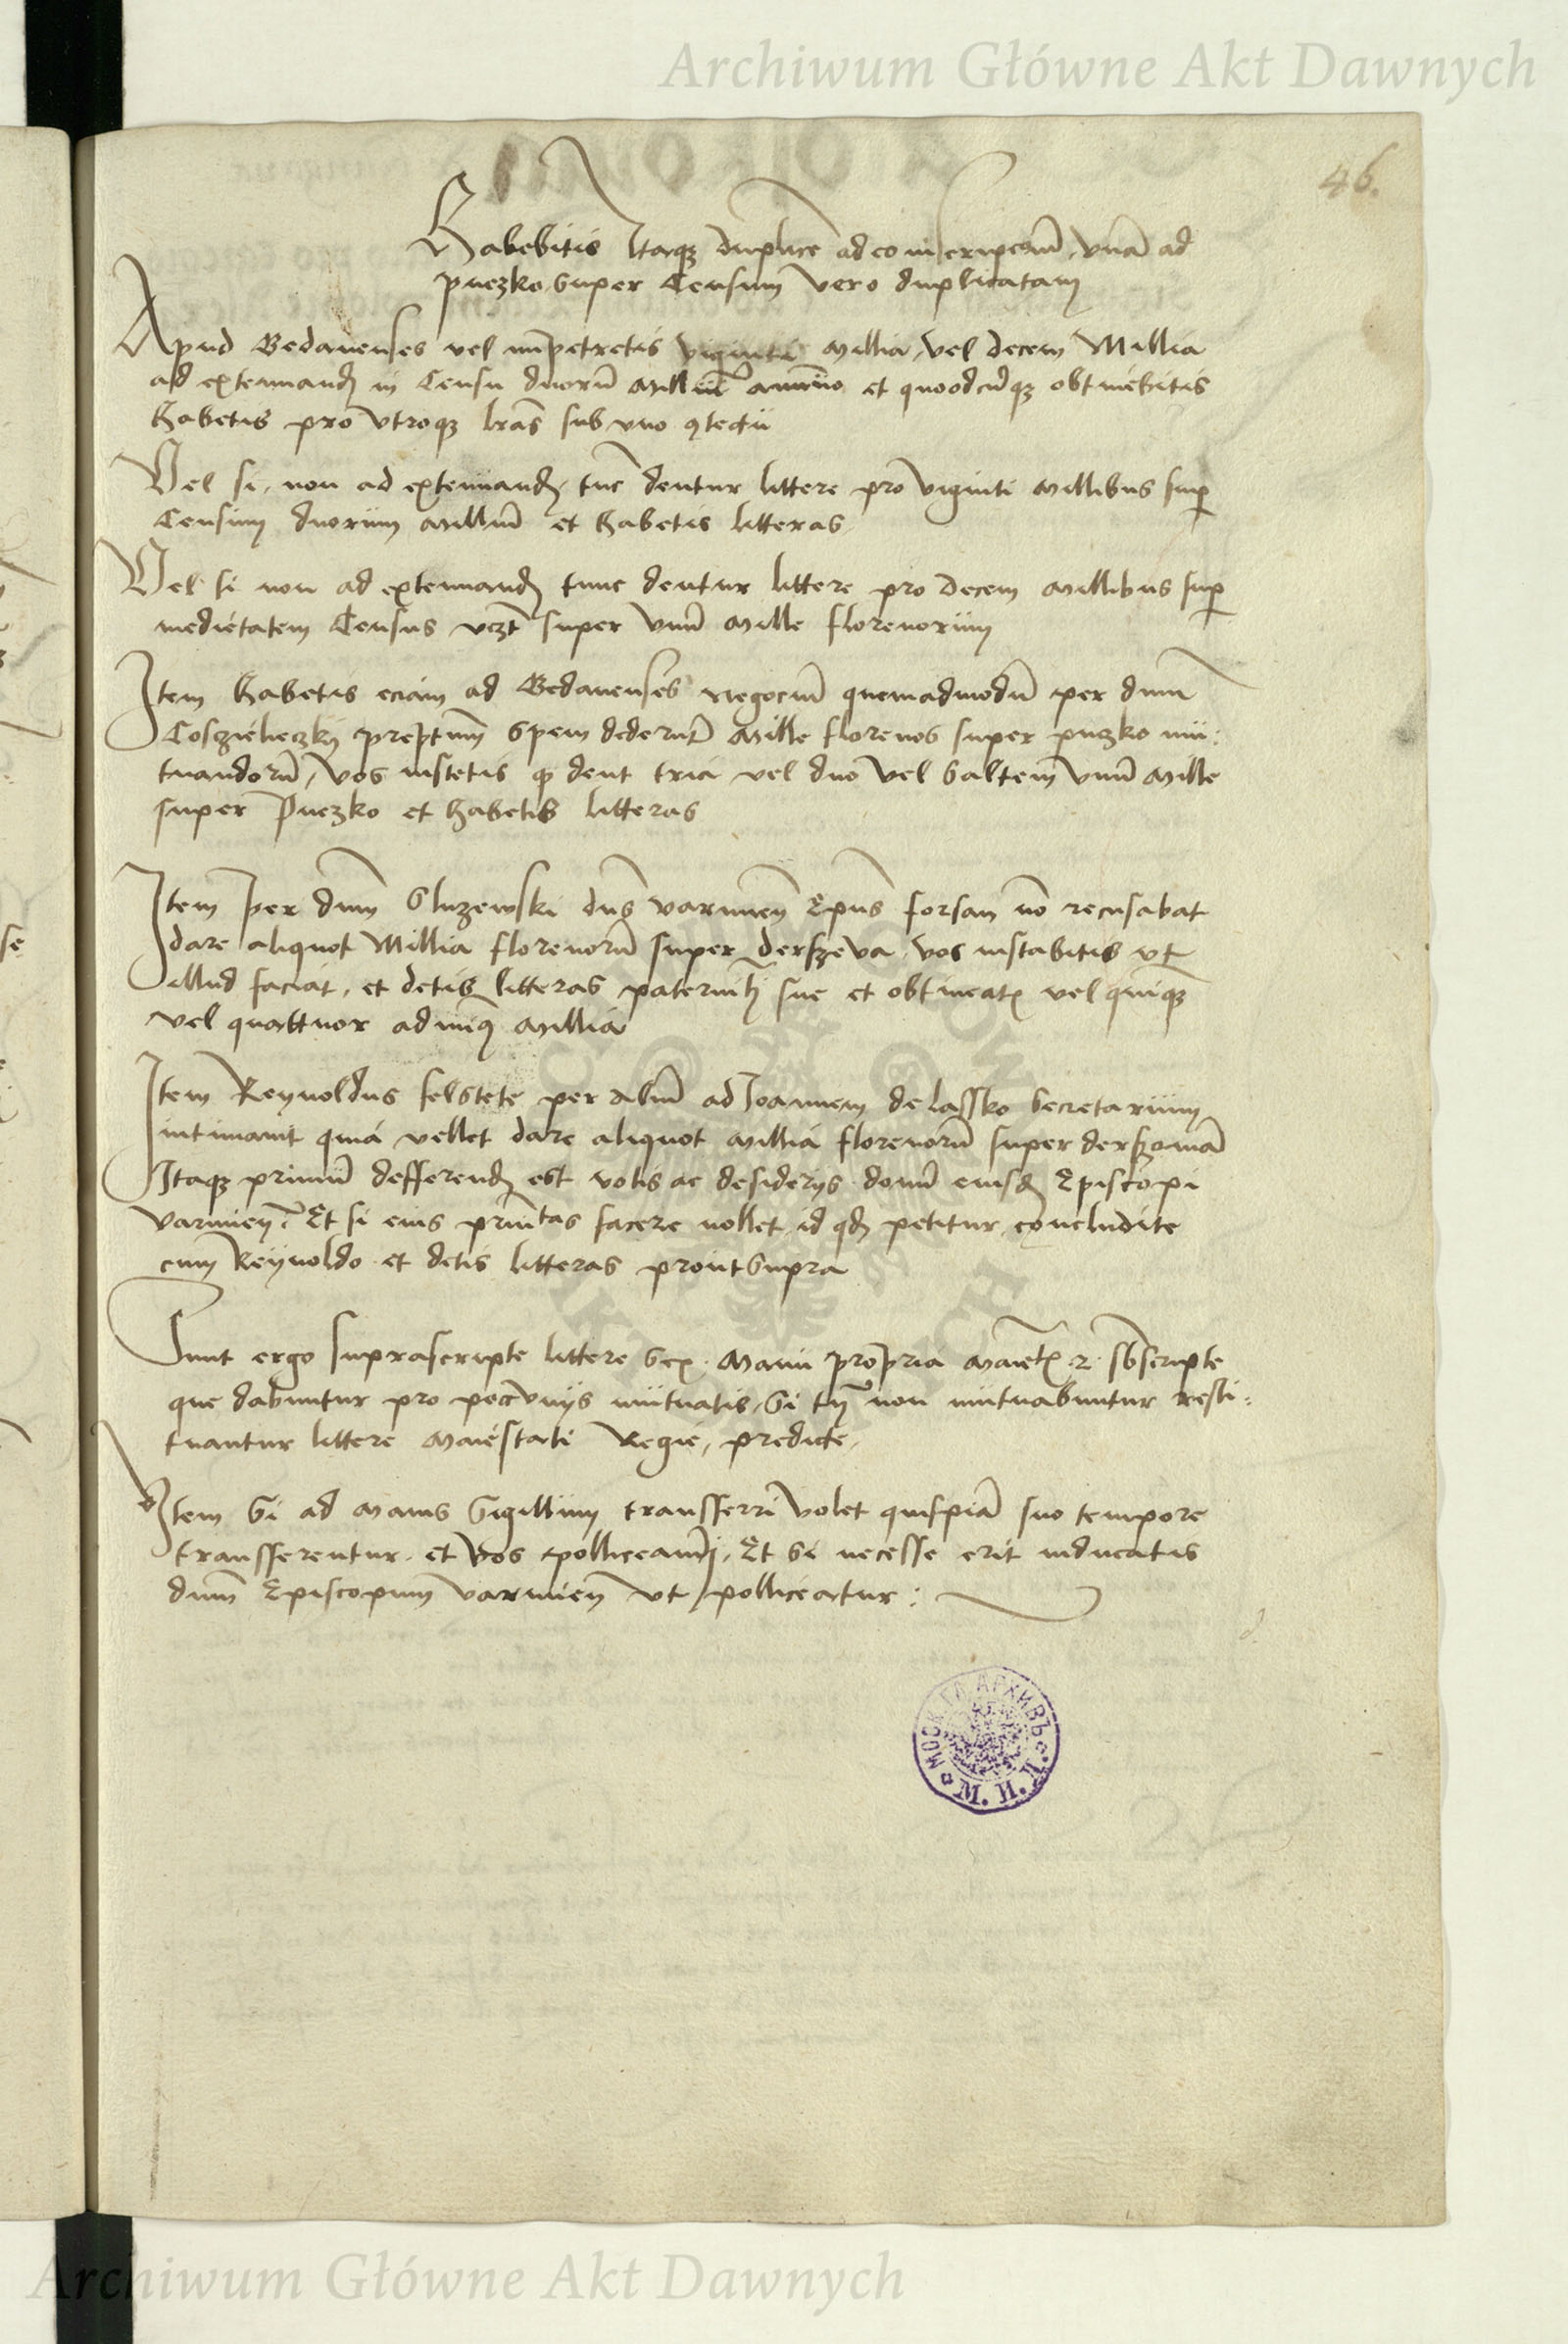 Archiwum Główne Akt Dawnych
46.
Habebitis Itaqz duplicē ad eo inscripcōnē, vnā ad
puczko super Censum vero duplicatam
Apud Gedanenses vel impetretis viginti Millia, vel decem Millia
ad extenuandȝ in Censu duorū Milliū annuo et quodcūqz obtinebitis
habetis pro vtroqz lr̄as sub vno ꝯtectu
Vel si, non ad extenuandȝ, tūc dentur littere pro viginti Millibus sup
Censum duorum Milliū et habetis litteras
Vel si non ad extenuandȝ tunc dentur littere pro decem Millibus sup
medietatem Census vczt super vnū Mille florenorum
Item habetis eciam ad Gedanenses negociū quemadmodū per dnm̄
Cosczieleczkÿ spem dederūt Mille florenos super puczko mu:
tuandorū, vos instetis qꝫ dent tria vel duo vel saltem vnū Mille
super Puczko et habetis litteras
Item per dnm̄ Sluzewski dn̄s varmien̄ Ep̄us forsan nō recusabat
dare aliquot Millia florenorū super derszeva, vos instabitis vt
illud faciat, et detis litteras sue et obtineatꝭ vel quinqz
vel quattuor ad minꝰ Millia
Item Reynoldus felstete per ad Joannem de lassko Secretarium
intimavit quia vellet dare aliquot Millia florenorū super derszovia
Itaqz primū defferendȝ est votis ac desiderÿs domī eiusdȝ Episcopi
varmien̄: Et si eius facere nollet id qdȝ petitur concludite
cum Reÿnoldo et detis litteras prout supra
Sunt ergo suprascripte littere Manu propria sb̄scripte
que dabuntur pro peccunÿs mutuatis, Si non mutuabuntur resti:
tuantur littere Maiestati Regie, predicte,
Item Si ad Maius Sigillum transferri volet quispiā suo tempore
transferentur et vos polliceaminj, Et si necesse erit inducatis
dnm̄ Episcopum varmien̄ vt polliceatur:
МОСК. ГЛ. АРХИВЪ
М. И. Д.
Archiwum Główne Akt Dawnych